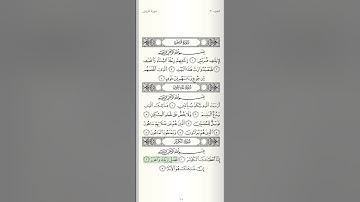 سورة قريش الجزء ٣٠
سُورَةُ قُرَيْشٍ
بِسْمِ اللَّهِ الرَّحْمَٰنِ الرَّحِيمِ
لِإِيلَٰفِ قُرَيْشٍ ١ إِۦلَٰفِهِمْ رِحْلَةَ الشِّتَاءِ وَالصَّيْفِ
٢ فَلْيَعْبُدُوا رَبَّ هَٰذَا الْبَيْتِ ٣ الَّذِي أَطْعَمَهُم
مِّن جُوعٍ وَءَامَنَهُم مِّنْ خَوْفٍ ٤
سُورَةُ الْمَاعُونِ
بِسْمِ اللَّهِ الرَّحْمَٰنِ الرَّحِيمِ
أَرَءَيْتَ الَّذِي يُكَذِّبُ بِالدِّينِ ١ فَذَٰلِكَ الَّذِي
يَدُعُّ الْيَتِيمَ ٢ وَلَا يَحُضُّ عَلَىٰ طَعَامِ الْمِسْكِينِ ٣
فَوَيْلٌ لِّلْمُصَلِّينَ ٤ الَّذِينَ هُمْ عَن صَلَاتِهِمْ سَاهُونَ
٥ الَّذِينَ هُمْ يُرَاءُونَ ٦ وَيَمْنَعُونَ الْمَاعُونَ ٧
سُورَةُ الْكَوْثَرِ
بِسْمِ اللَّهِ الرَّحْمَٰنِ الرَّحِيمِ
إِنَّا أَعْطَيْنَٰكَ الْكَوْثَرَ ١ فَصَلِّ لِرَبِّكَ وَانْحَرْ ٢
إِنَّ شَانِئَكَ هُوَ الْأَبْتَرُ ٣